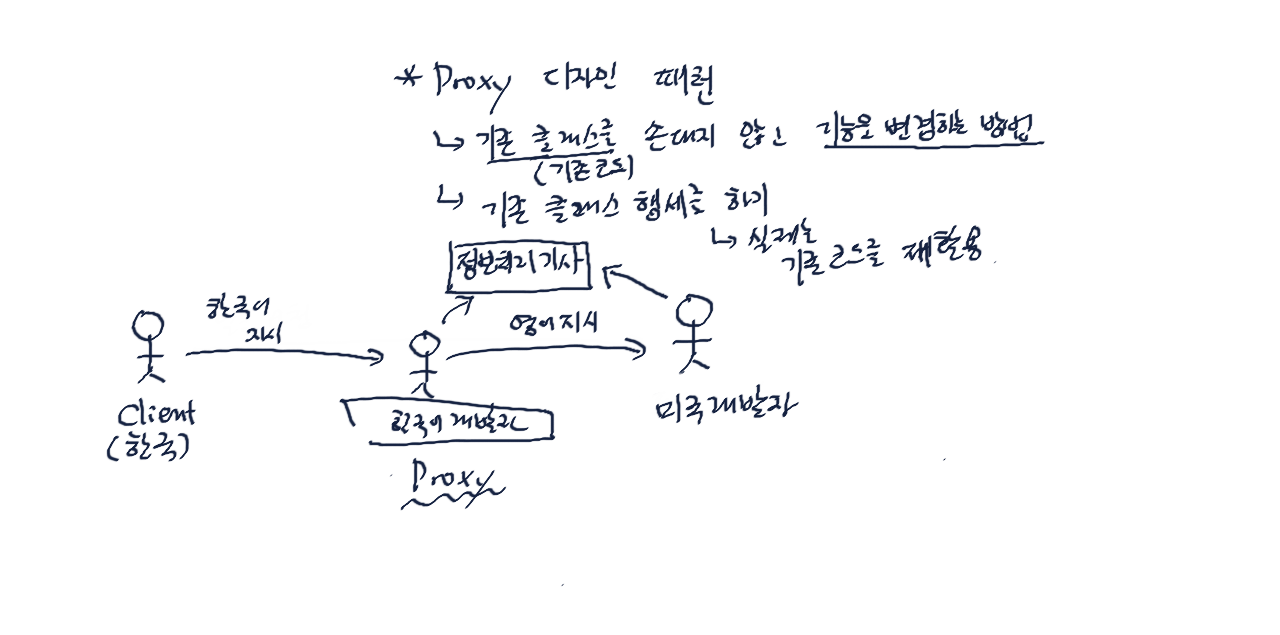 * Proxy 디자인 패턴
↳ 기존 클래스를 손대지 않고 기능을 변경하는 방법
(기존 코드)
↳ 기존 클래스 행세를 하기
↳ 실제는
기존 코드를 재활용
정보처리기사
한국어
지시
영어지시
Client
(한국)
한국어 개발자
미국개발자
Proxy